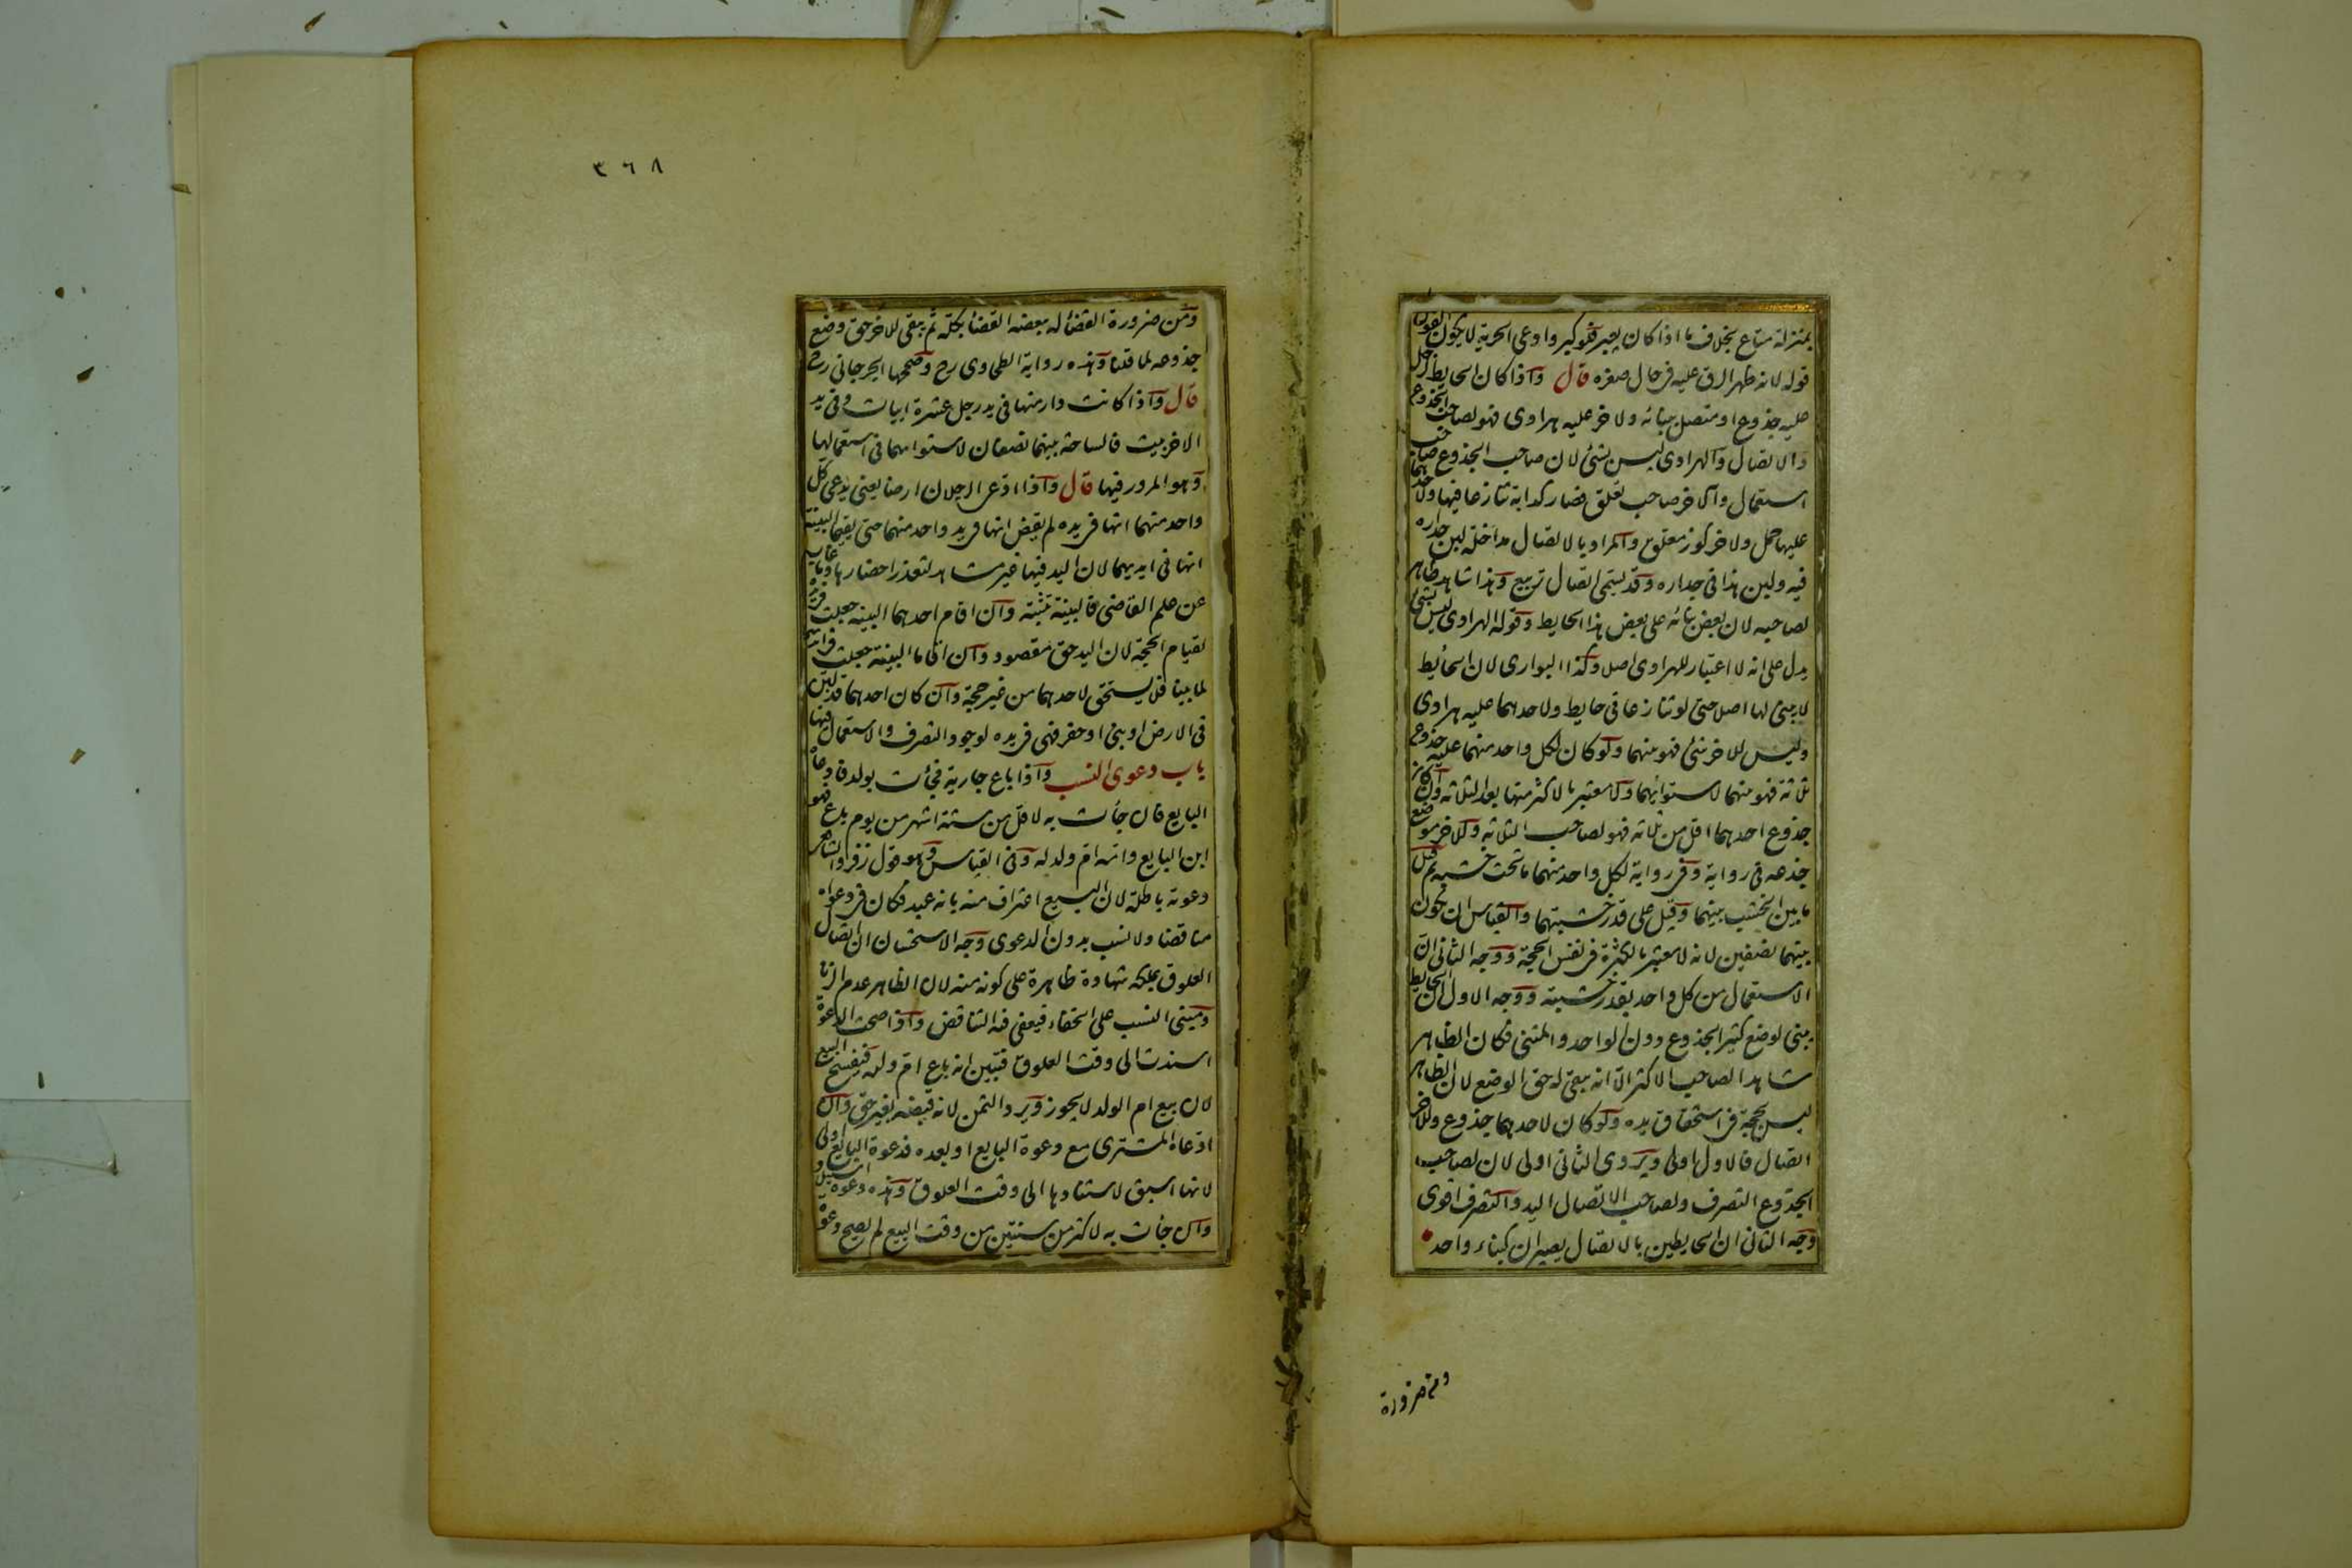 بمنزلة متاع بخلاف ما اذا كان يعبر فلو كبر وادعى الحرية لا يكون القول
قوله لانه ظهر الرق عليه في حال صغره قال واذا كان الحايط لرجل
عليه جذوع او متصل ببنائه ولاخر عليه هرادى فهو لصاحب الجذوع
والاتصال والهرادى ليس بشئ لان صاحب الجذوع صاحب
استعمال والاخر صاحب تعلق فصار كدابة تنازعا فيها ولاحدهما
عليها حمل ولاخر كوز معلق والمراد بالاتصال مداخلة لبن جداره
فيه ولبن هذا في جداره وقد يسمى اتصال تربيع وهذا شاهد ظاهر
لصاحبه لان بعض بنائه على بعض هذا الحايط وقوله الهرادى ليس بشئ
يدل على انه لا اعتبار للهرادى اصلا وكذا البوارى لان الحايط
لا يبنى لها اصلا حتى لو تنازعا في حايط ولاحدهما عليه هرادى
وليس للاخر شئ فهو بينهما ولو كان لكل واحد منهما عليه جذوع
ثلاثة فهو بينهما لاستوائهما ولا معتبر بالاكثر منها بعد الثلاثة وان كان
جذوع احدهما اقل من ثلاثة فهو لصاحب الثلاثة وللاخر موضع
جذعه في رواية وفي رواية لكل واحد منهما ما تحت خشبه ثم قيل
ما بين الخشب بينهما وقيل على قدر خشبتهما والقياس ان يكون
بينهما نصفين لانه لا معتبر بالكثرة في نفس الحجة ووجه الثانى ان
الاستعمال من كل واحد بقدر خشبته ووجه الاول ان الحايط
يبنى لوضع كثير الجذوع دون الواحد والمثنى فكان الظاهر
شاهدا لصاحب الاكثر الا انه يبقى له حق الوضع لان الظاهر
ليس بحجة في استحقاق يده ولو كان لاحدهما جذوع وللاخر
اتصال فالاول اولى ويروى الثانى اولى لان لصاحب
الجذوع التصرف ولصاحب الاتصال اليد والتصرف اقوى
وجه الثانى ان الحايطين بالاتصال يصيران كبناء واحد
ومن ضرورة
٣٦٨
ومن ضرورة القضاء له ببعضه القضاء بكله ثم يبقى للاخر حق وضع
جذوعه لما قلنا وهذه رواية الطحاوى رح وصححها الجرجانى رح
قال واذا كانت دار منها في يد رجل عشرة ابيات وفى يد
الاخر بيت فالساحة بينهما نصفان لاستوائهما في استعمالها
وهو المرور فيها قال واذا ادعى الرجلان ارضا يعنى يدعى كل
واحد منهما انها في يده لم يقض انها في يد واحد منهما حتى يقيما البينة
انها فى ايديهما لان اليد فيها غير مشاهد لتعذر احضارها وما غاب
عن علم القاضى فالبينة تثبته وان اقام احدهما البينة جعلت في يده
لقيام الحجة لان اليد حق مقصود وان اقاما البينة جعلت في ايديهما
لما بينا فلا يستحق لاحدهما من غير حجة وان كان احدهما قد لبن
في الارض او بنى او حفر فهى في يده لوجود التصرف والاستعمال فيها
باب دعوى النسب واذا باع جارية فجئت بولد فادعاه
البايع فان جأت به لاقل من ستة اشهر من يوم باع فهو
ابن البايع وامه ام ولد له وفى القياس وهو قول زفر والشافعى
دعوته باطلة لان البيع اعتراف منه بانه عبد فكان في دعواه
مناقضا ولا نسب بدون الدعوى وجه الاستحسان ان اتصال
العلوق بملكه شهادة ظاهرة على كونه منه لان الظاهر عدم الزنا
ومبنى النسب على الخفاء فيعفى فيه التناقض واذا صحت الدعوة
اسندت الى وقت العلوق فتبين انه باع ام ولده فيفسخ البيع
لان بيع ام الولد لا يجوز ويرد الثمن لانه قبضه بغير حق وان
ادعاه المشترى مع دعوة البايع او بعده فدعوة البايع اولى
لانها اسبق لاستنادها الى وقت العلوق وهذه دعوة استيلاد
وان جأت به لاكثر من سنتين من وقت البيع لم يصح دعوة